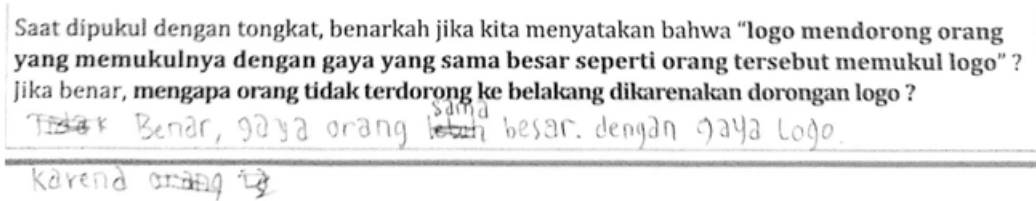 Saat dipukul dengan tongkat, benarkah jika kita menyatakan bahwa “logo mendorong orang
yang memukulnya dengan gaya yang sama besar seperti orang tersebut memukul logo” ?
Jika benar, mengapa orang tidak terdorong ke belakang dikarenakan dorongan logo ?
Tidak Benar, gaya orang lebih sama besar. dengan gaya Logo.
Karena orang